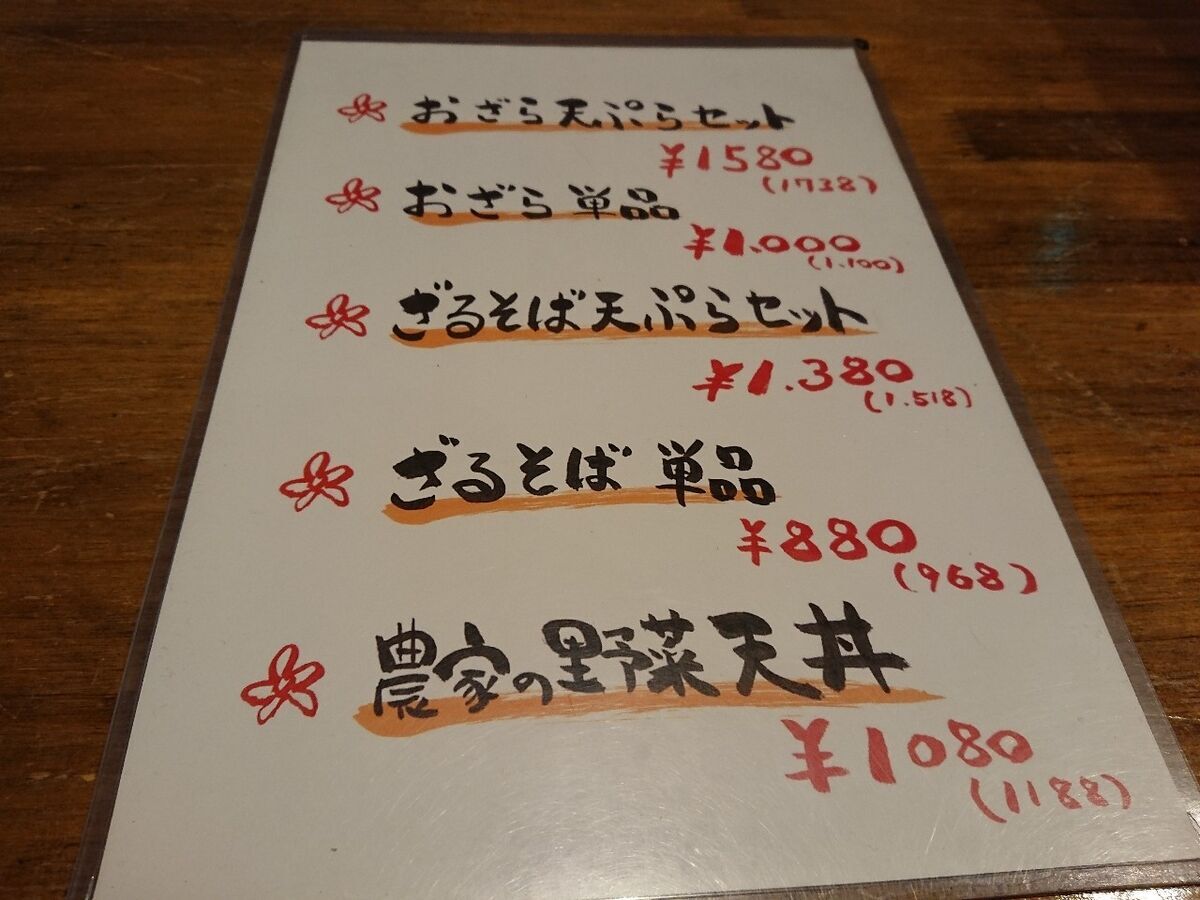 おざら天ぷらセット
¥1580
(1738)
おざら単品
¥1.000
(1.100)
ざるそば天ぷらセット
¥1.380
(1.518)
ざるそば 単品
¥880
(968)
農家の野菜天丼
¥1080
(1188)